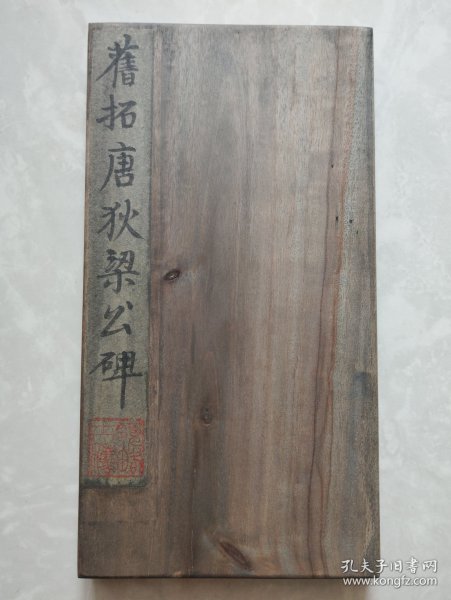 舊拓唐狄梁公碑
孔夫子旧书网
www.kongfz.com